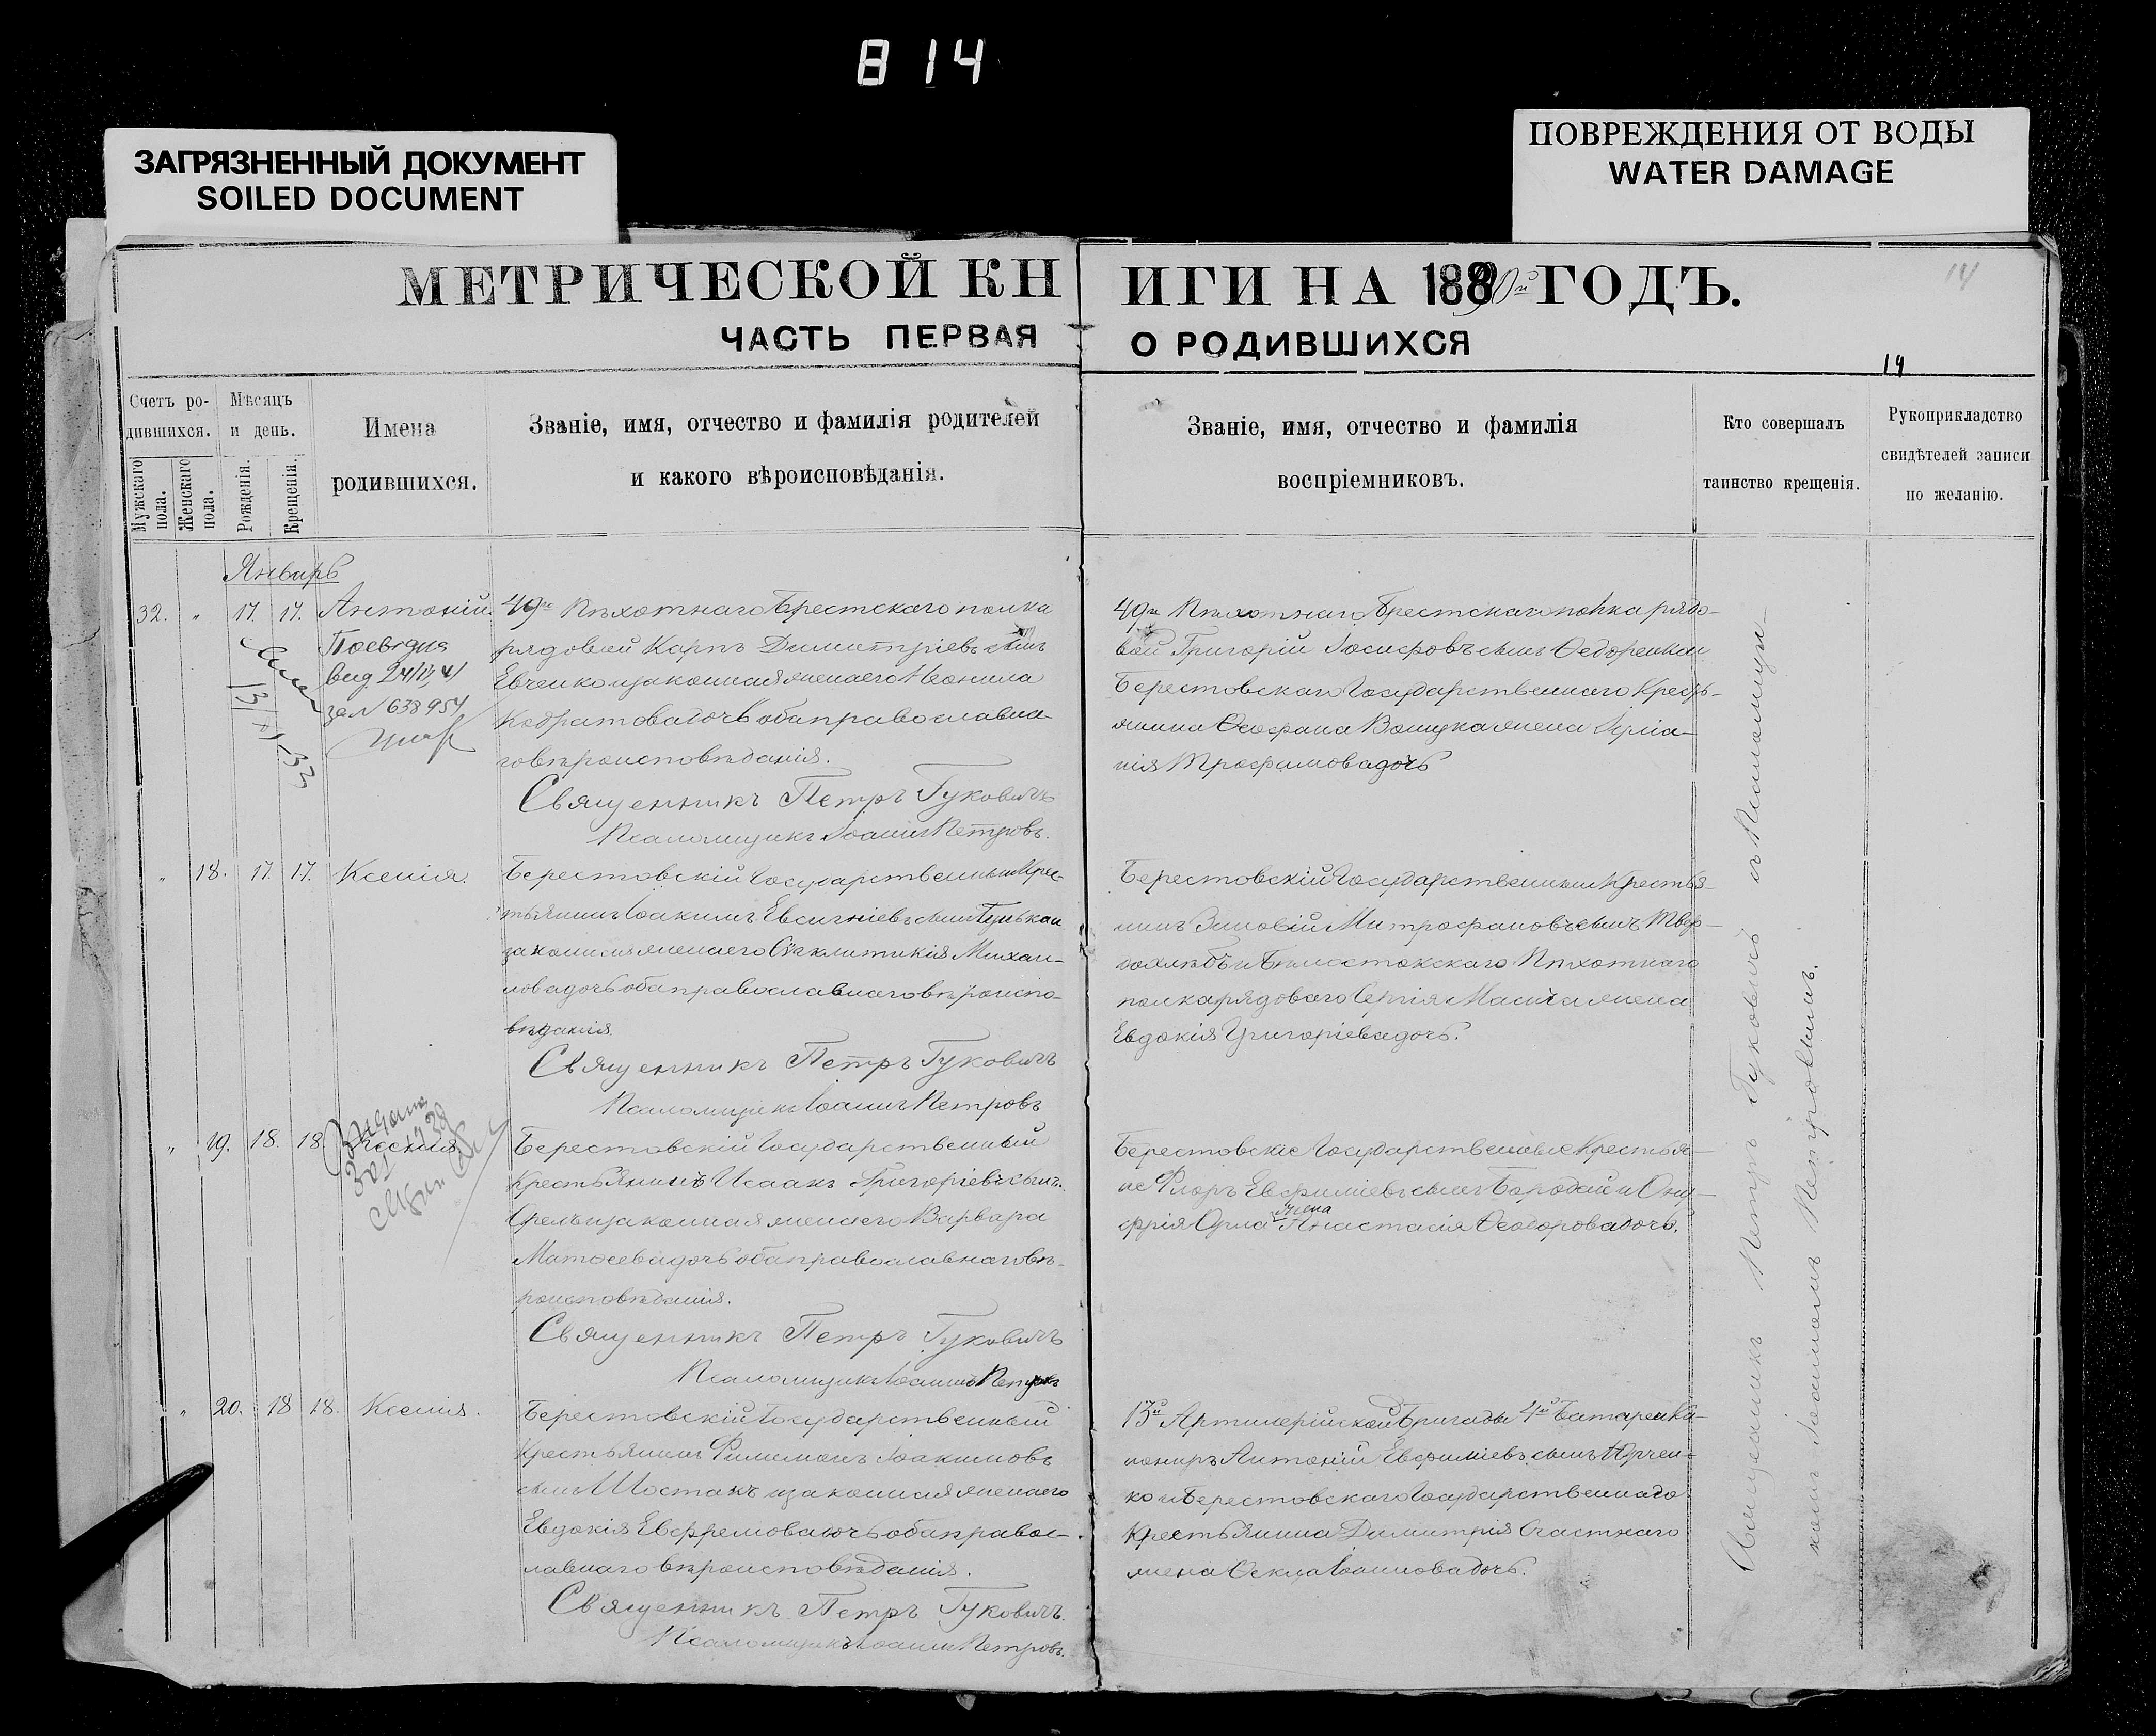 814
ЗАГРЯЗНЕННЫЙ ДОКУМЕНТ
SOILED DOCUMENT
ПОВРЕЖДЕНИЯ ОТ ВОДЫ
WATER DAMAGE
МЕТРИЧЕСКОЙ КНИГИ НА 1890й ГОДЪ.
14
ЧАСТЬ ПЕРВАЯ О РОДИВШИХСЯ
14
Счетъ ро-
дившихся.
Мужскаго пола.
Женскаго пола.
Мѣсяцъ
и день.
Рожденія.
Крещенія.
Имена
родившихся.
Званіе, имя, отчество и фамилія родителей
и какого вѣроисповѣданія.
Званіе, имя, отчество и фамилія
воспріемниковъ.
Кто совершалъ
таинство крещенія.
Рукоприкладство
свидѣтелей записи
по желанію.
Январь
32. " 17. 17. Антоній
49го Пѣхотнаго Брестскаго полка
рядовый Карпъ Димитріевъ сынъ
Евченко и законная жена его Неонила
Кодратова дочь оба православна-
го вѣроисповѣданія.
Священникъ Петръ Гуковичъ
Псаломщикъ Іоаннъ Петровъ.
49го Пѣхотнаго Брестскаго полка рядо-
вой Григорій Іосифовъ сынъ Ѳедоренко и
Берестовскаго Государственнаго Кресть-
янина Ѳеофана жена
Трофимова дочь
вид. 24/IV 41
638954
" 18. 17. 17. Ксенія.
Берестовскій Государственный Крес-
тьянинъ Іоакимъ Евсигніевъ сынъ
законная жена его Сигклитикія Михаи-
лова дочь оба православнаго вѣроиспо-
вѣданія.
Священникъ Петръ Гуковичъ
Псаломщикъ Іоаннъ Петровъ
Берестовскій Государственный Крестья-
нинъ Зиновій Митрофановъ сынъ Твер-
дохлѣбъ и Бѣлостокскаго Пѣхотнаго
полка рядоваго Сергія жена
Евдокія Григоріева дочь.
" 19. 18. 18. Ксенія
Берестовскій Государственный
Крестьянинъ Исаакъ Григоріевъ сынъ
Орелъ и законная жена его Варвара
Матѳеева дочь оба православнаго вѣ-
роисповѣданія.
Священникъ Петръ Гуковичъ
Псаломщикъ Іоаннъ Петровъ
Берестовскіе Государственные Крестья-
не Флоръ Евфиміевъ сынъ Бородай и Ону-
фрія Орла жена Анастасія Ѳеодорова дочь.
" 20. 18 18. Ксенія.
Берестовскій Государственный
Крестьянинъ Филимонъ Іоакимовъ
сынъ Шостакъ и законная жена его
Евдокія Евфремова дочь оба правос-
лавнаго вѣроисповѣданія.
Священникъ Петръ Гуковичъ.
Псаломщикъ Іоаннъ Петровъ.
Артилерійской Бригады 4й Батареи Ка-
нониръ Антоній Евфиміевъ сынъ Юрчен-
ко и Берестовскаго Государственнаго
Крестьянина Димитрія Счастнаго
жена Ѳекла Іоаннова дочь.
Священникъ Петръ Гуковичъ съ Псаломщи-
комъ Іоанномъ Петровымъ.